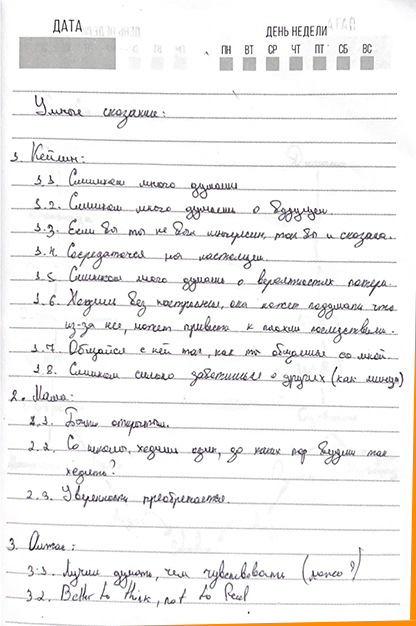 ДАТА
ДЕНЬ НЕДЕЛИ
ПН ВТ СР ЧТ ПТ СБ ВС
Умные сказание:
1. Кейлин:
1.1. Слишком много думаешь
1.2. Слишком много думаешь о будущем.
1.3. Если бы ты не был интересен, так бы и сказала.
1.4. Сосредоточся на настоящем.
1.5. Слишком много думаешь о вероятностях потери.
1.6. Ходишь без настроения, она может подумать что
из-за нее, может привести к плохим последствиям.
1.7. Общайся с ней так, как ты общаешься со мной.
1.8. Слишком сильно заботишься о других (как минус)
2. Мама:
2.1. Боишься открыться.
2.2. Со школы, ходишь один, до каких пор будешь так
ходить?
2.3. Уверенность преобретается.
3.
3.1. Лучше думать, чем чувствовать
3.2. Better to think, not to feel